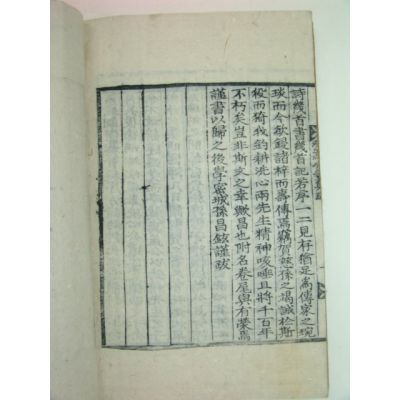 詩幾首書幾首記若序一二見存猶是爲傳家之琬
琰而今欲鋟諸梓而壽傳焉竊賀慈孫之竭誠於斯
役而猗我釣耕洗心兩先生精神咳唾且將千百年
不朽矣豈非斯文之幸歟昌也附名卷尾與有榮焉
謹書以歸之後學密城孫昌鉉謹跋